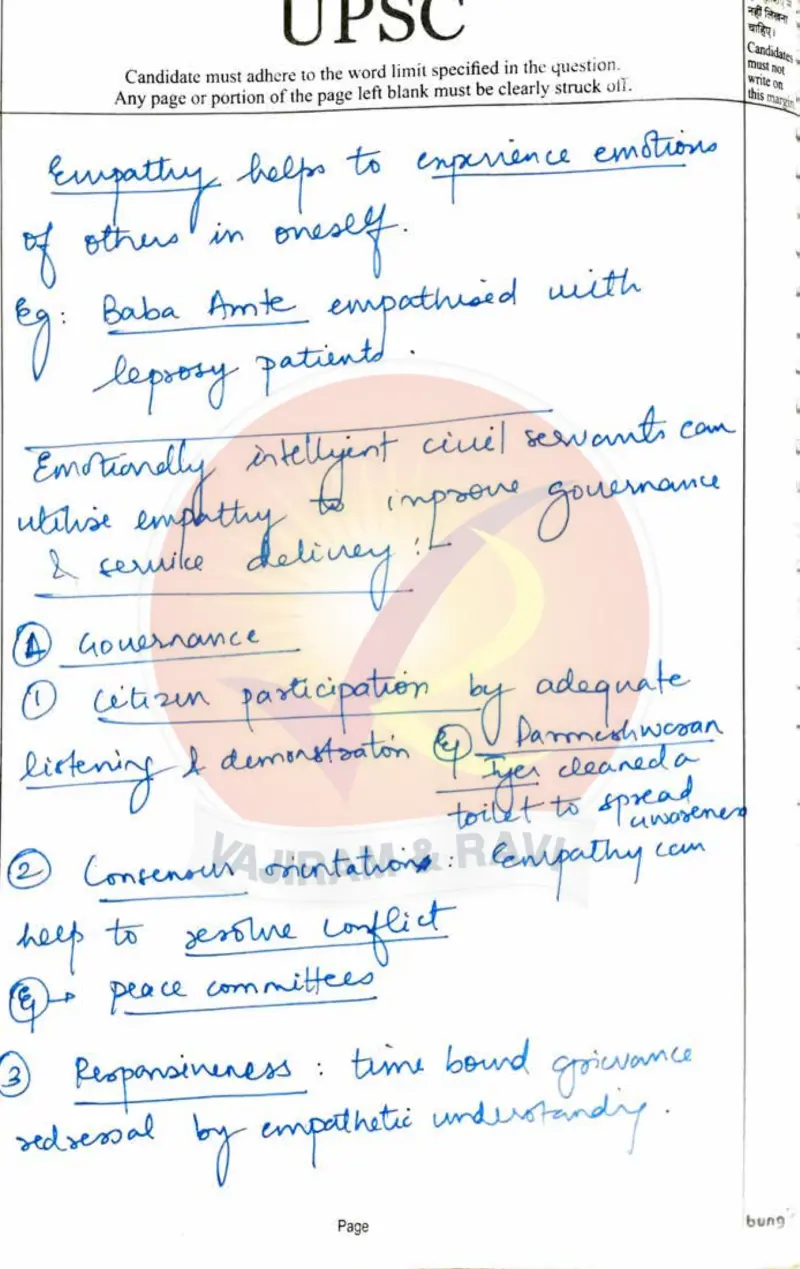 UPSC
Candidate must adhere to the word limit specified in the question.
Any page or portion of the page left blank must be clearly struck off.
नहीं लिखना
चाहिए।
Candidates
must not
write on
this margin
Empathy helps to experience emotions
of others in oneself.
Eg: Baba Amte empathised with
leprosy patients.
Emotionally intelligent civil servants can
utilise empathy to improve governance
& service delivery :-
A Governance
1 Citizen participation by adequate
listening & demonstration Eg Parmeshwaran
Iyer cleaned a
toilet to spread
awareness
VAJIRAM & RAVI
2 Consensus orientation: Empathy can
help to resolve conflict
Eg → peace committees
3 Responsiveness : time bound grievance
redressal by empathetic understanding.
Page
bung